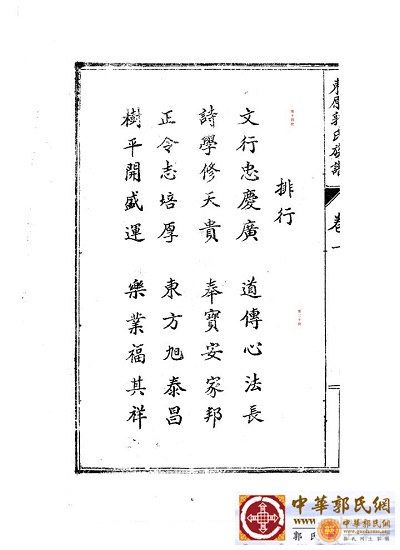 東原郭氏族譜
卷一
排行
文行忠慶廣 道傳心法長
詩學修天貴 奉寶安家邦
正令志培厚 東方旭泰昌
樹平開盛運 樂業福其祥
中華郭氏網